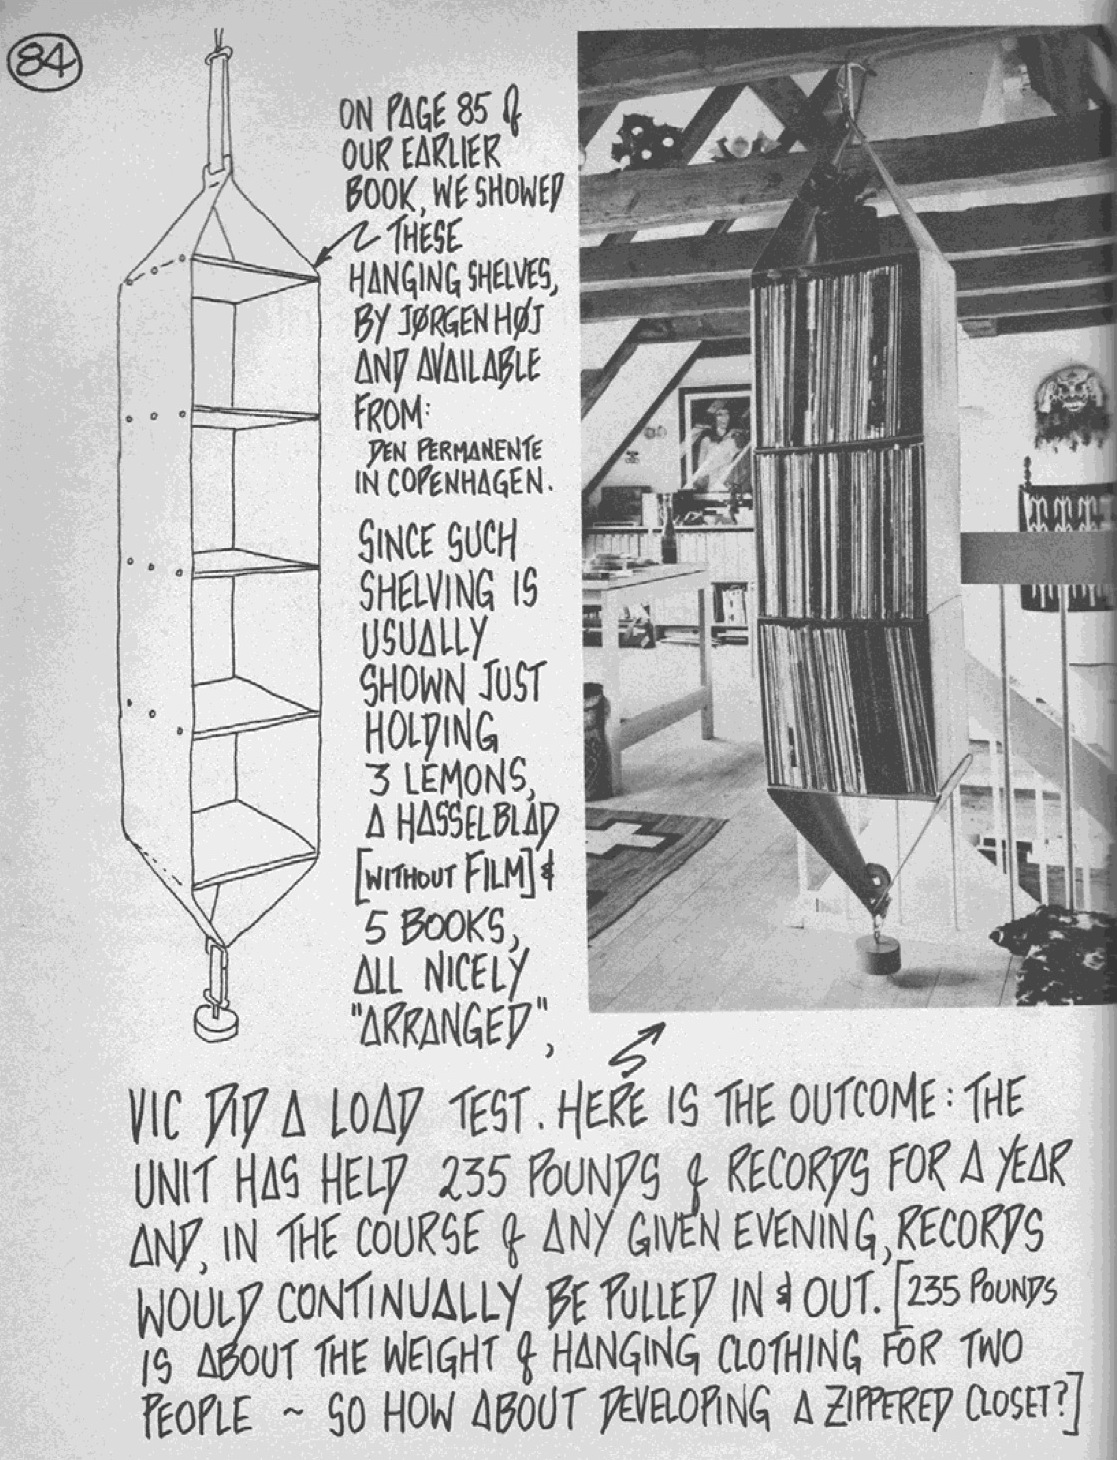 84
ON PAGE 85 of
OUR EARLIER
BOOK, WE SHOWED
THESE
HANGING SHELVES,
BY JØRGEN HØJ
AND AVAILABLE
FROM:
DEN PERMANENTE
IN COPENHAGEN.
SINCE SUCH
SHELVING IS
USUALLY
SHOWN JUST
HOLDING
3 LEMONS,
A HASSELBLAD
[WITHOUT FILM] &
5 BOOKS,
ALL NICELY
"ARRANGED",
VIC DID A LOAD TEST. HERE IS THE OUTCOME: THE
UNIT HAS HELD 235 POUNDS of RECORDS FOR A YEAR
AND, IN THE COURSE of ANY GIVEN EVENING, RECORDS
WOULD CONTINUALLY BE PULLED IN & OUT. [235 POUNDS
IS ABOUT THE WEIGHT of HANGING CLOTHING FOR TWO
PEOPLE ~ SO HOW ABOUT DEVELOPING A ZIPPERED CLOSET?]